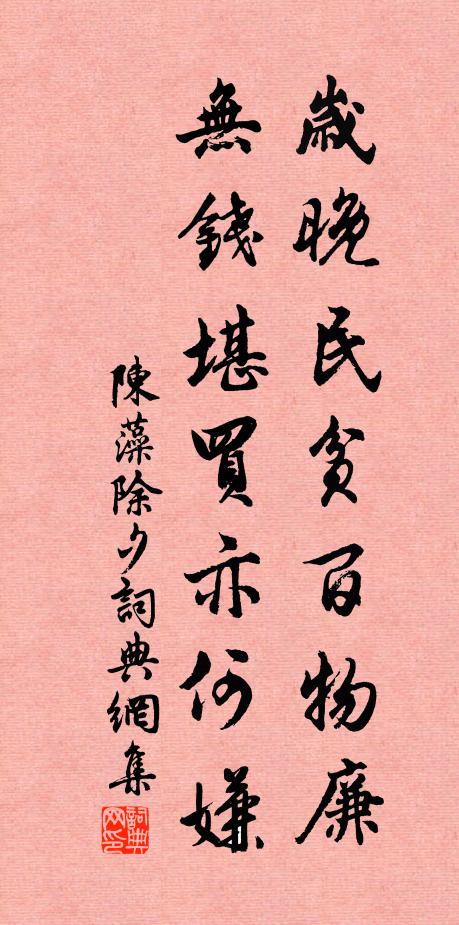 歲晚民貧百物廉
無錢堪買亦何嫌
陳藻除夕詞典網集
詞典網印